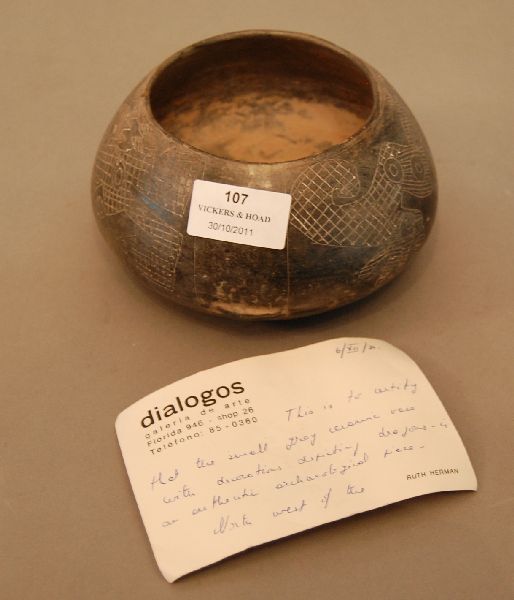 107
VICKERS & HOAD
30/10/2011
dialogos
galeria de arte
Florida 946 - shop 26
Teléfono: 85-0360
This is to certify
that the small grey ceramic vase
with decorations depicting dragons - is
an authentic archaeological piece -
North west of the
RUTH HERMAN